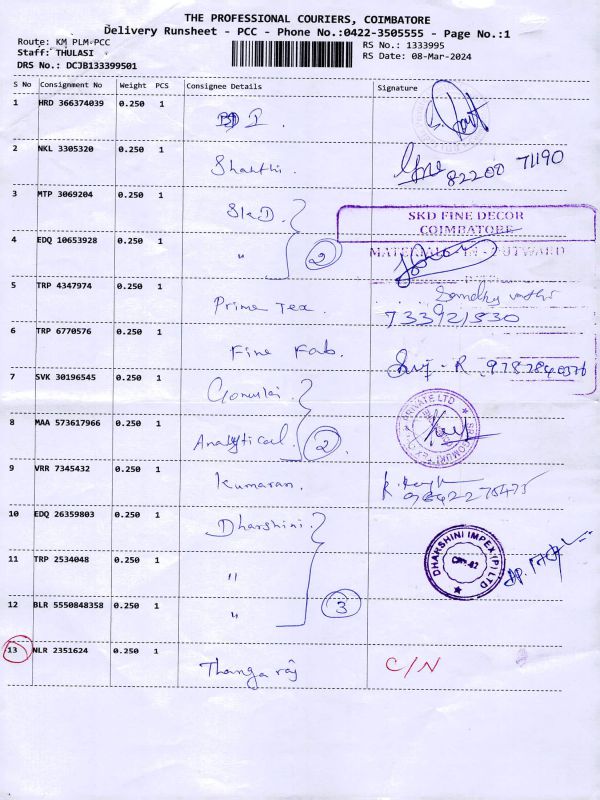 THE PROFESSIONAL COURIERS, COIMBATORE
Delivery Runsheet - PCC - Phone No.:0422-3505555 - Page No.:1
Route: KM PLM-PCC
RS No.: 1333995
Staff: THULASI
RS Date: 08-Mar-2024
DRS No.: DCJB133399501
S No Consignment No Weight PCS Consignee Details Signature
1 HRD 366374039 0.250 1
2 NKL 3305320 0.250 1 Shakthi. 82200 71190
3 MTP 3069204 0.250 1 SKD
SKD FINE DECOR
COIMBATORE
4 EDQ 10653928 0.250 1 " 2
MATERIALS - IN - OUTWARD
5 TRP 4347974 0.250 1 Prime Tex. 733921530
6 TRP 6770576 0.250 1 Fine Fab.
7 SVK 30196545 0.250 1 Gomuki
PRIVATE LTD
8 MAA 573617966 0.250 1 Analytical. 2
9 VRR 7345432 0.250 1 Kumaran.
10 EDQ 26359803 0.250 1 Dharshini.
DHARSHINI IMPEX (P) LTD
11 TRP 2534048 0.250 1 "
12 BLR 5550848358 0.250 1 " 3
13 NLR 2351624 0.250 1 Thangaraj C/N